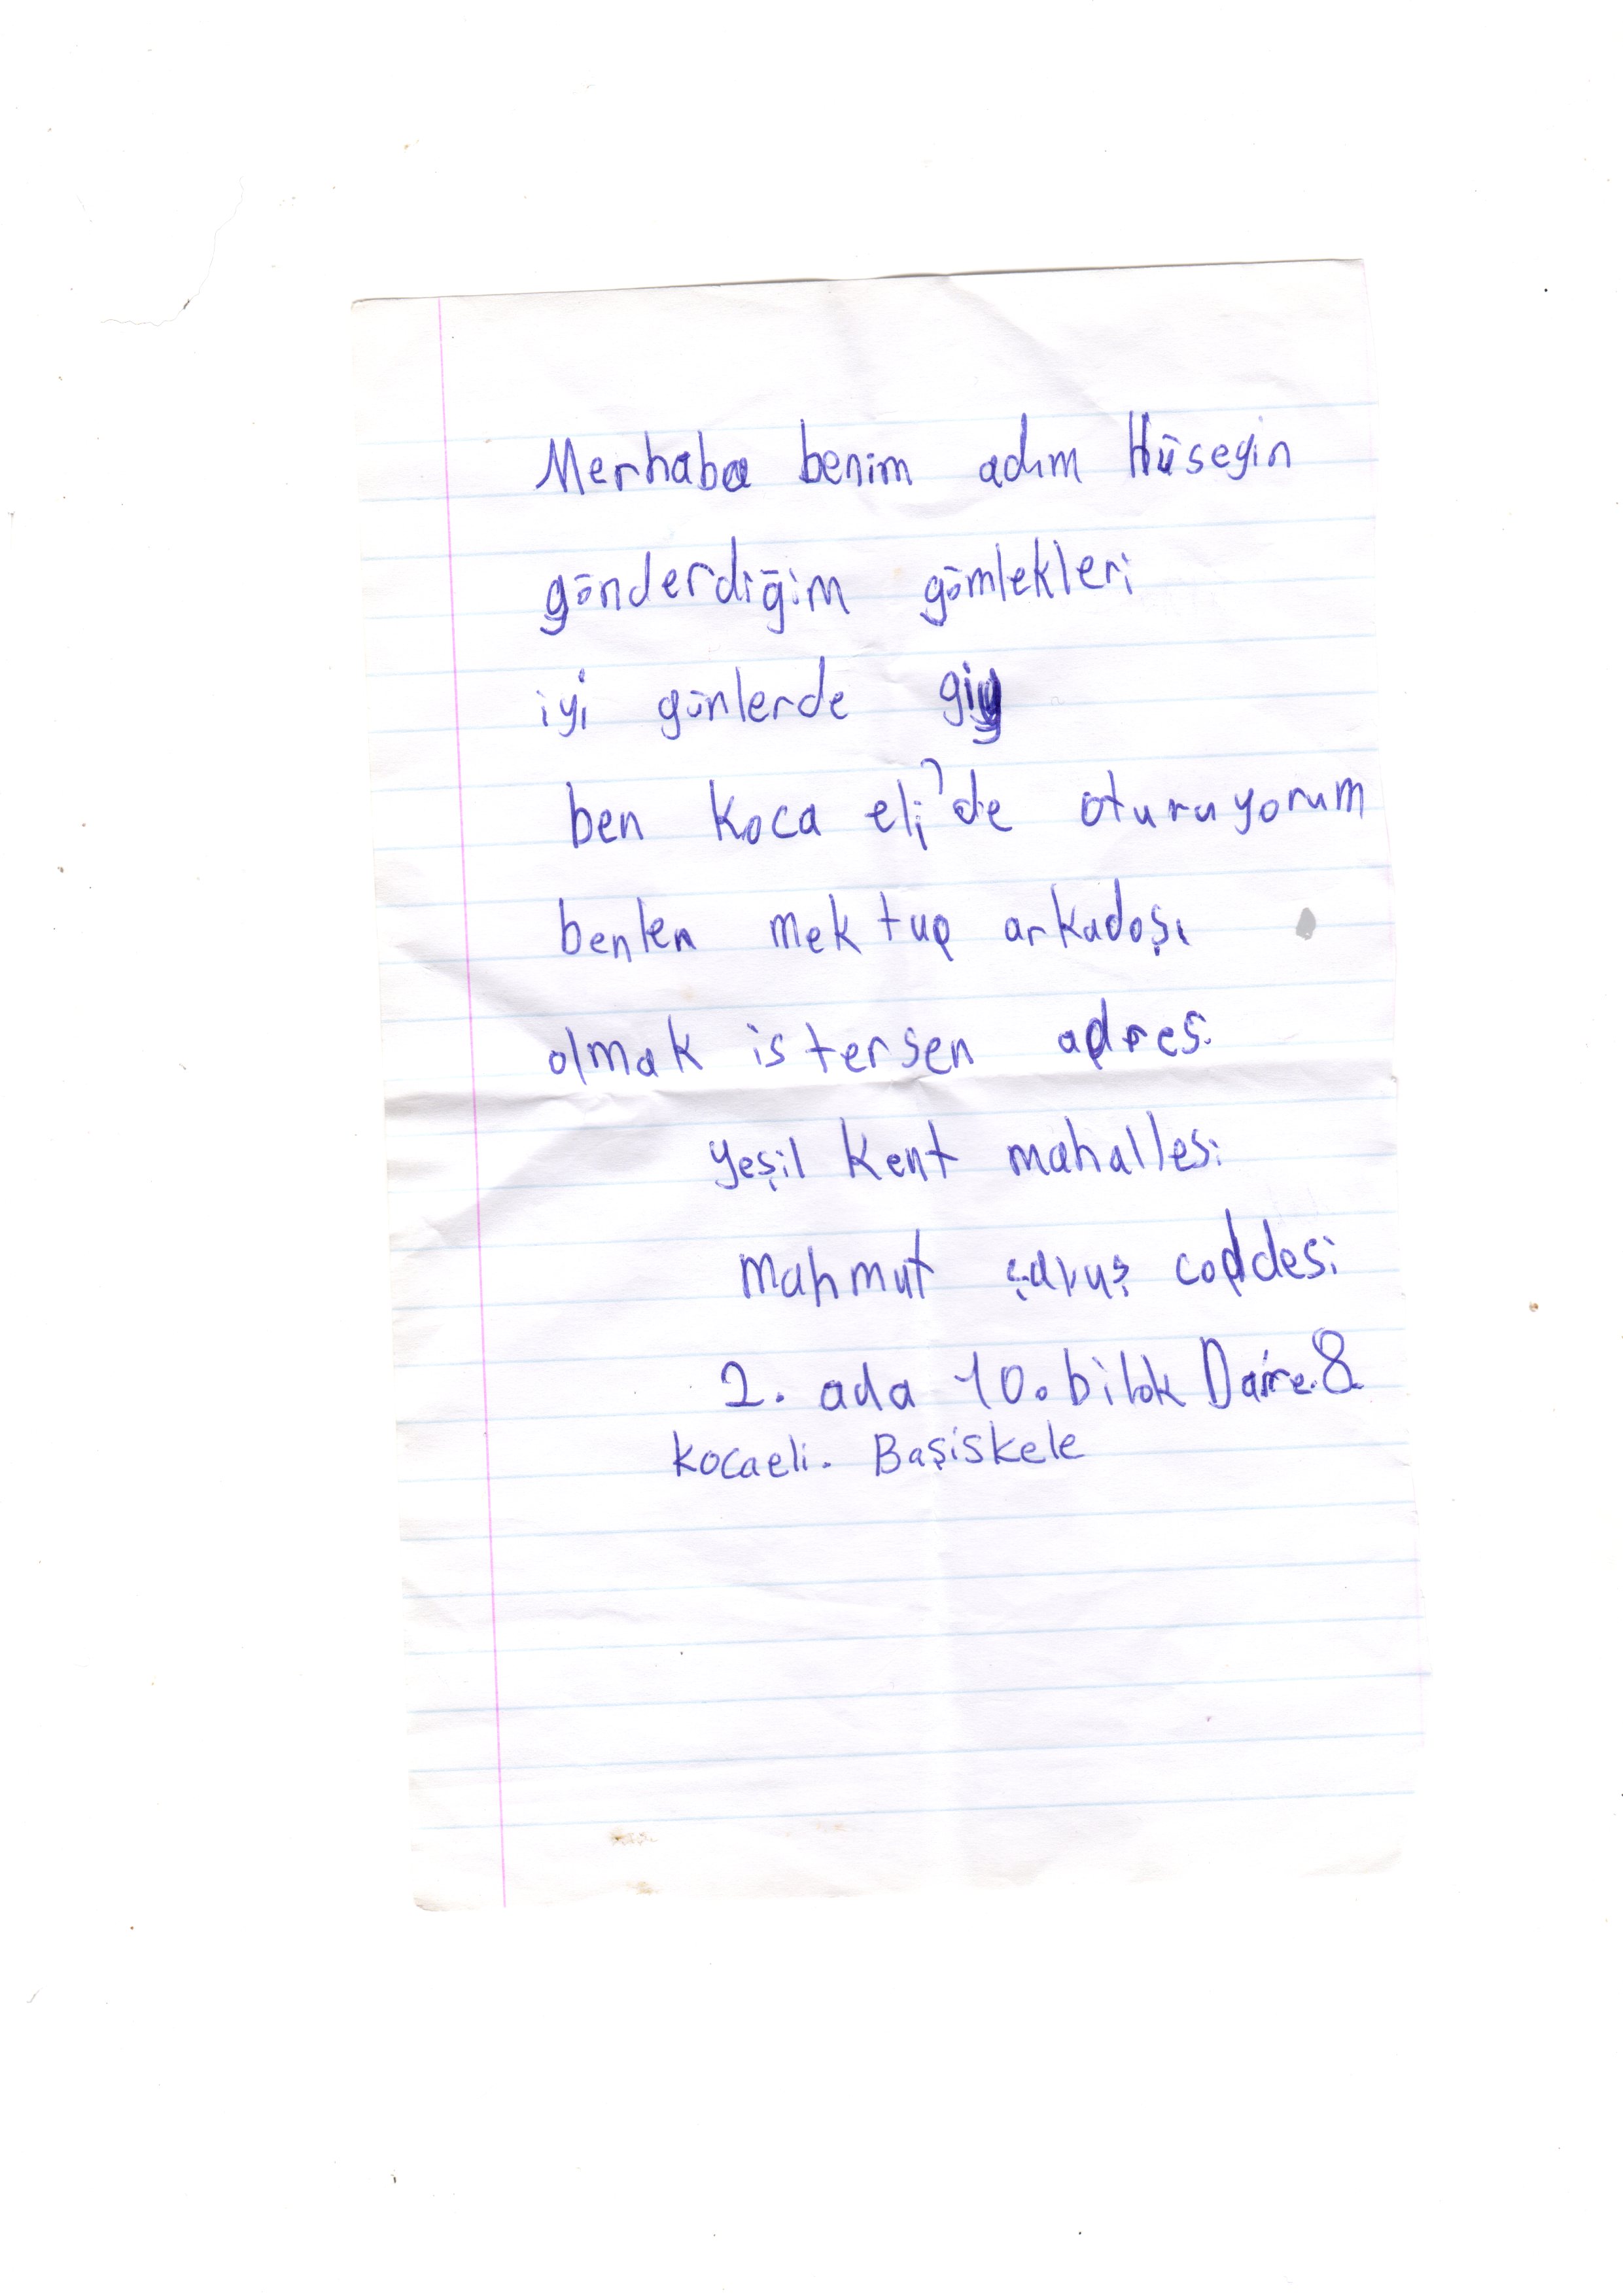 Merhaba benim adım Hüseyin
gönderdiğim gömlekleri
iyi günlerde giy
ben Koca eli'de oturuyorum
benlen mektup arkadaşı
olmak istersen adres
yeşil Kent mahallesi
Mahmut çavuş caddesi
2. ada 10. bilok Daire.8
kocaeli. Başiskele